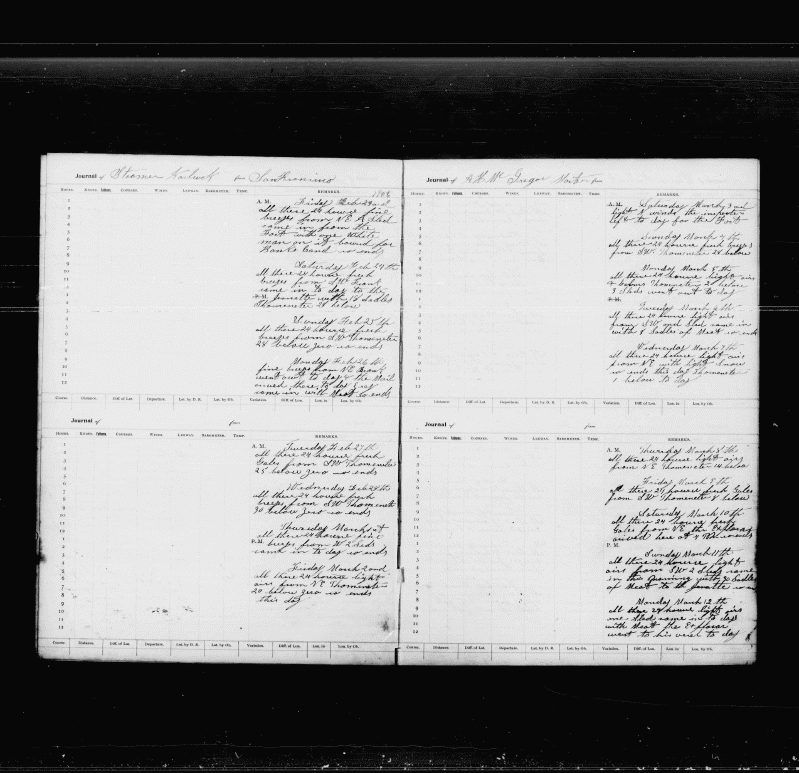 Journal of Steamer Karluk from San Francisco
HOURS. KNOTS. Fathoms. COURSES. WINDS. LEEWAY. BAROMETER. THER. REMARKS. 1906
A. M. Friday Feb 23rd
all these 24 hours fine
breeps from N E a Sled
came in from the
with one White
man on it bound for
Banks Land so ends
Saturday Feb 24th
all these 24 hours fresh
breeps from SW. Frank
came in to day to the
P. M. with 18 Sadles
Thomemeter 28 below
Sunday Feb 25th
all these 24 hours fresh
breeps from SW Thomemeter
28 below zero so ends
Monday Feb 26th
fine breeps from N E Frank
went out to day & the Mail
came in with Meat so ends
Course. Distance. Diff. of Lat. Departure. Lat. by D. R. Lat. by Ob. Variation. Diff. of Lon. Lon. in Lon. by Ob.
Journal of from
HOURS. KNOTS. Fathoms. COURSES. WINDS. LEEWAY. BAROMETER. THER. REMARKS.
A. M. Tuesday Feb 27th
all these 24 hours fresh
Gales from SW Thomemeter
25 below zero so ends
Wednesday Feb 28th
all these 24 hours fresh
breeps from SW Thomemeter
30 below zero so ends
Thursday March 1st
all these 24 hours fine
P. M. breeps from W 2 Sleds
came in to day so ends
Friday March 2ond
all these 24 hours light
airs from N E Thomemeter
20 below zero so ends
this day
Course. Distance. Diff. of Lat. Departure. Lat. by D. R. Lat. by Ob. Variation. Diff. of Lon. Lon. in Lon. by Ob.
Journal of McGregor Master from
HOURS. KNOTS. Fathoms. COURSES. WINDS. LEEWAY. BAROMETER. THER. REMARKS.
A. M. Saturday March 3rd
light winds the
left to day for the
Sunday March 4th
all these 24 hours fresh breeps
from SW. Thomemeter 28 below
Monday March 5th
all these 24 hours light airs
Thomemeter 21 below
3 Sleds went out to day
P. M.
Tuesday March 6th
all these 24 hours light airs
from SW one Sled came in
with 4 Sadles of Meat so ends
Wednesday March 7th
all these 24 hours light airs
from N E with light Snow
so ends this day Thomemeter
1 below to day
Course. Distance. Diff. of Lat. Departure. Lat. by D. R. Lat. by Ob. Variation. Diff. of Lon. Lon. in Lon. by Ob.
Journal of from
HOURS. KNOTS. Fathoms. COURSES. WINDS. LEEWAY. BAROMETER. THER. REMARKS.
A. M. Thursday March 8th
all these 24 hours light airs
from N E Thomemeter 14 below
Friday March 9th
all these 24 hours fresh Gales
from SW Thomemeter below
Saturday March 10th
all these 24 hours fresh
Gales from N E the
arived here at 4 PM so ends
P. M.
Sunday March 11th
all these 24 hours light
airs from SW 2 Sleds came
in this with 30 Sadles
of Meat to the so ends
Monday March 12th
all these 24 hours light airs
one Sled came in to day
with Meat the
went to his vesel to day
Course. Distance. Diff. of Lat. Departure. Lat. by D. R. Lat. by Ob. Variation. Diff. of Lon. Lon. in Lon. by Ob.